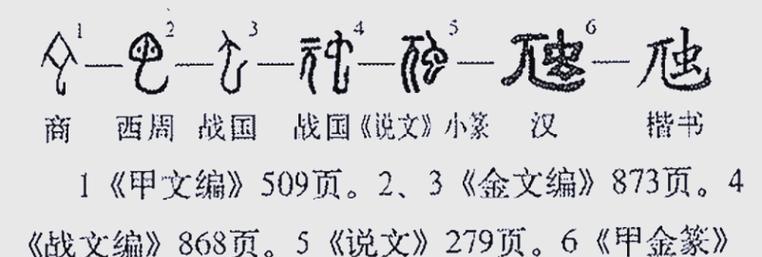 1 2 3 4 5 6
商 西周 战国 战国《说文》小篆 汉 楷书
1《甲文编》509页。2、3《金文编》873页。4
《战文编》868页。5《说文》279页。6《甲金篆》